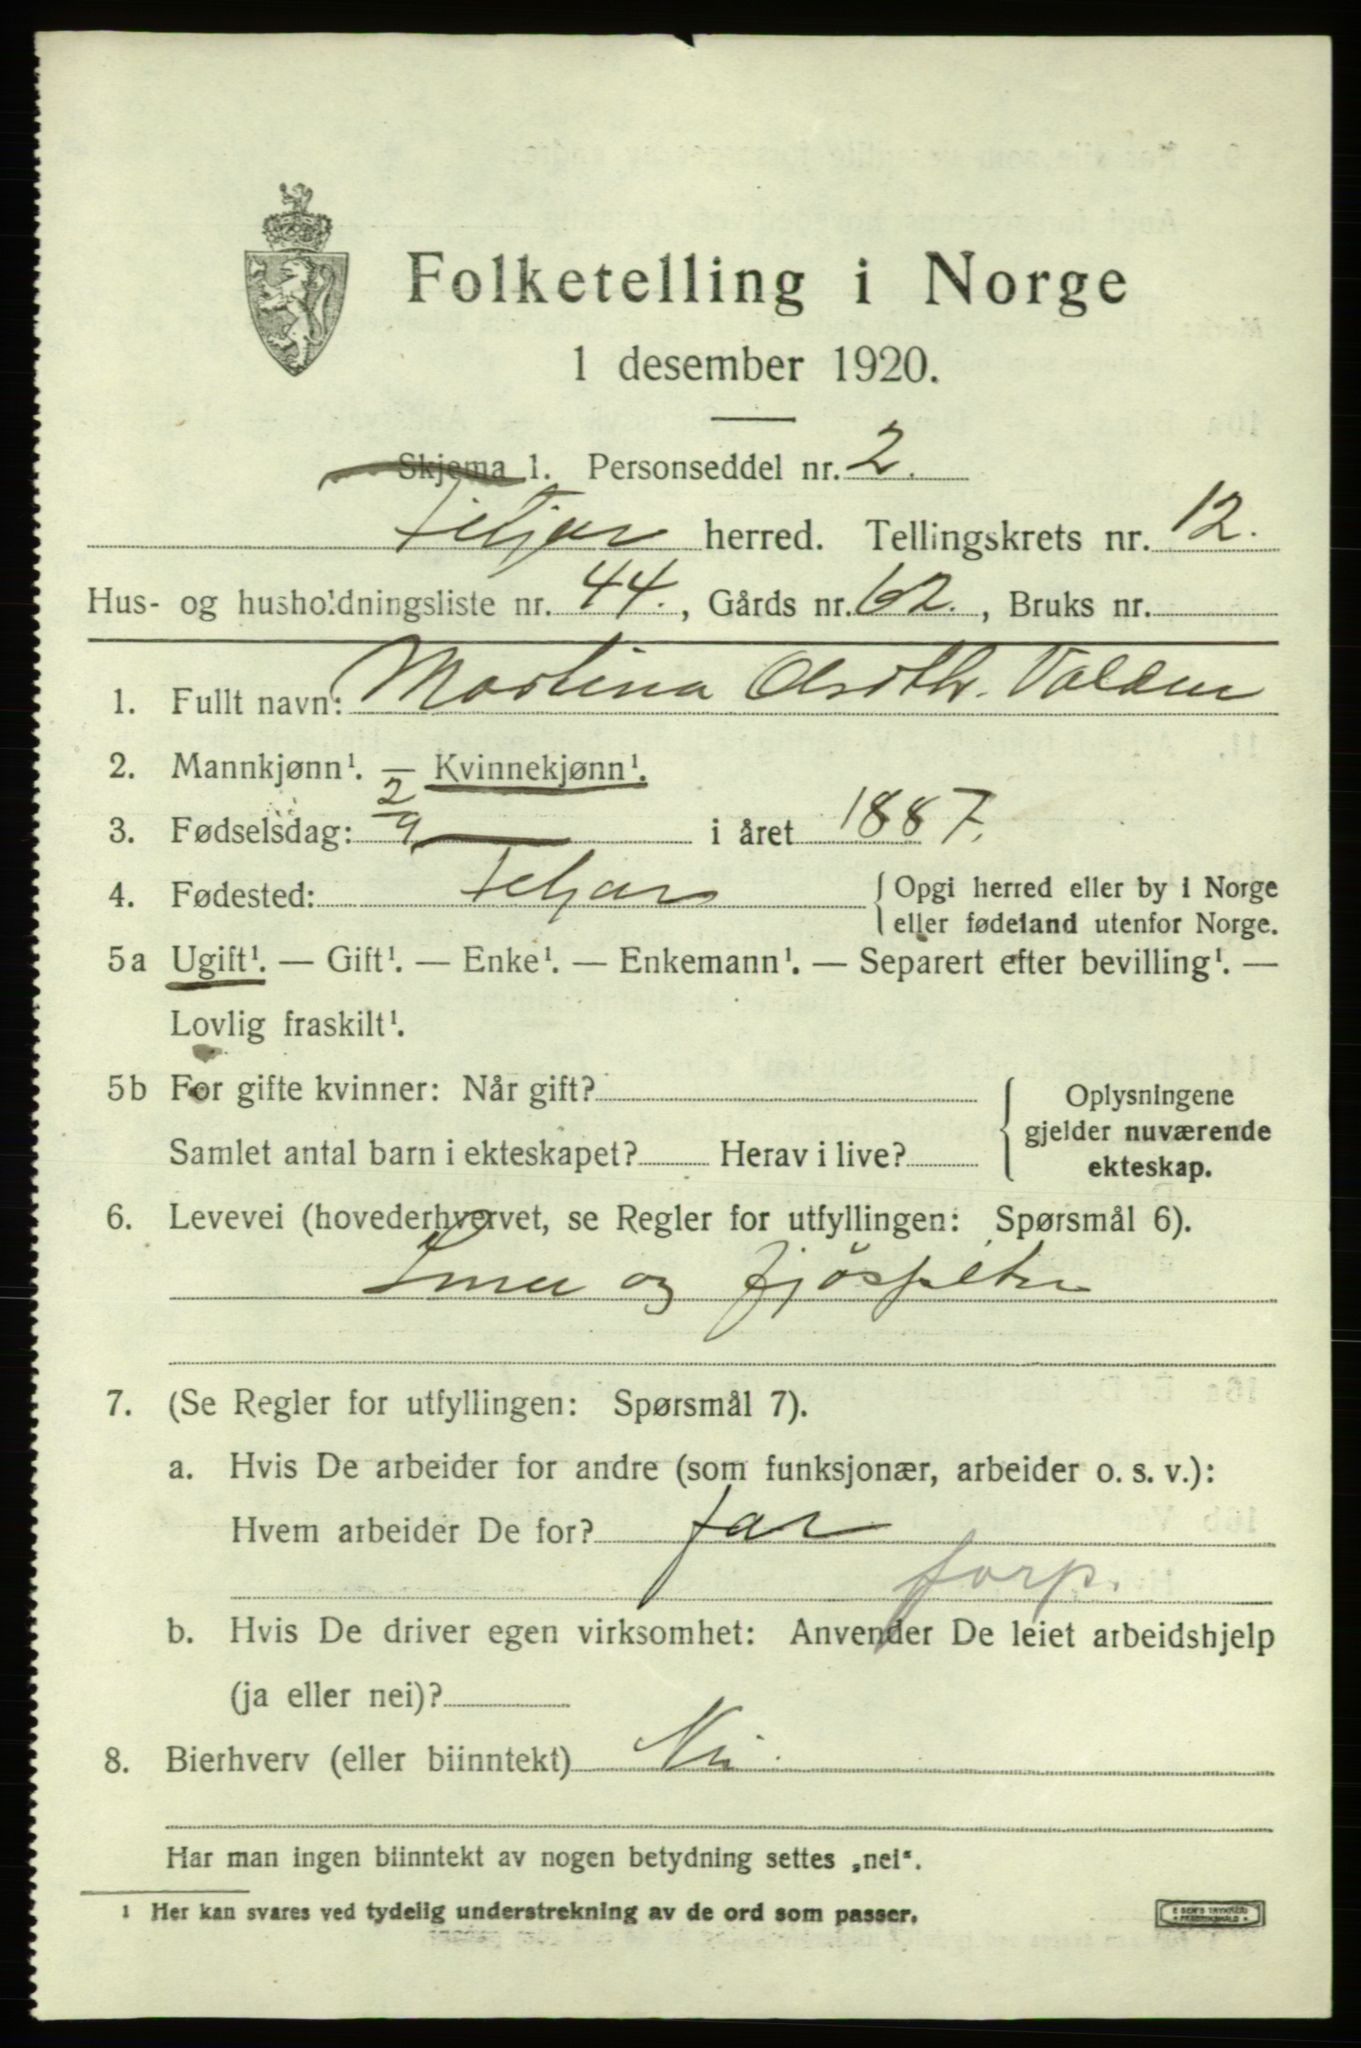 Folketelling i Norge
1 desember 1920.
Skjema 1. Personseddel nr. 2.
Fitjar herred. Tellingskrets nr. 12.
Hus- og husholdningsliste nr. 44., Gårds nr. 62., Bruks nr.
1. Fullt navn: Martina Olsdtr. Valdne
2. Mannkjønn¹. — Kvinnekjønn¹.
3. Fødselsdag: 2/9 i året 1887.
4. Fødested: Fitjar { Opgi herred eller by i Norge
eller fødeland utenfor Norge.
5a Ugift¹. — Gift¹. — Enke¹. — Enkemann¹. — Separert efter bevilling¹. —
Lovlig fraskilt¹.
5b For gifte kvinner: Når gift? { Oplysningene
gjelder nuværende
Samlet antal barn i ekteskapet? Herav i live? ekteskap.
6. Levevei (hovederhvervet, se Regler for utfyllingen: Spørsmål 6).
og
7. (Se Regler for utfyllingen: Spørsmål 7).
a. Hvis De arbeider for andre (som funksjonær, arbeider o. s. v.):
Hvem arbeider De for? far
forp.
b. Hvis De driver egen virksomhet: Anvender De leiet arbeidshjelp
(ja eller nei)?
8. Bierhverv (eller biinntekt) Nei
Har man ingen biinntekt av nogen betydning settes „nei“.
¹ Her kan svares ved tydelig understrekning av de ord som passer.